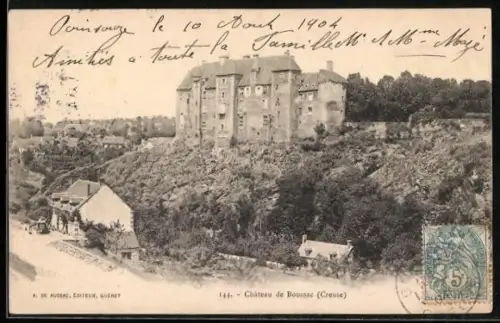 le 10 Aout 1904
Amitiés à toute la Famille Mr & Mme
A. DE NUSSAC, ÉDITEUR, GUÉRET
144. - Château de Boussac (Creuse)
5